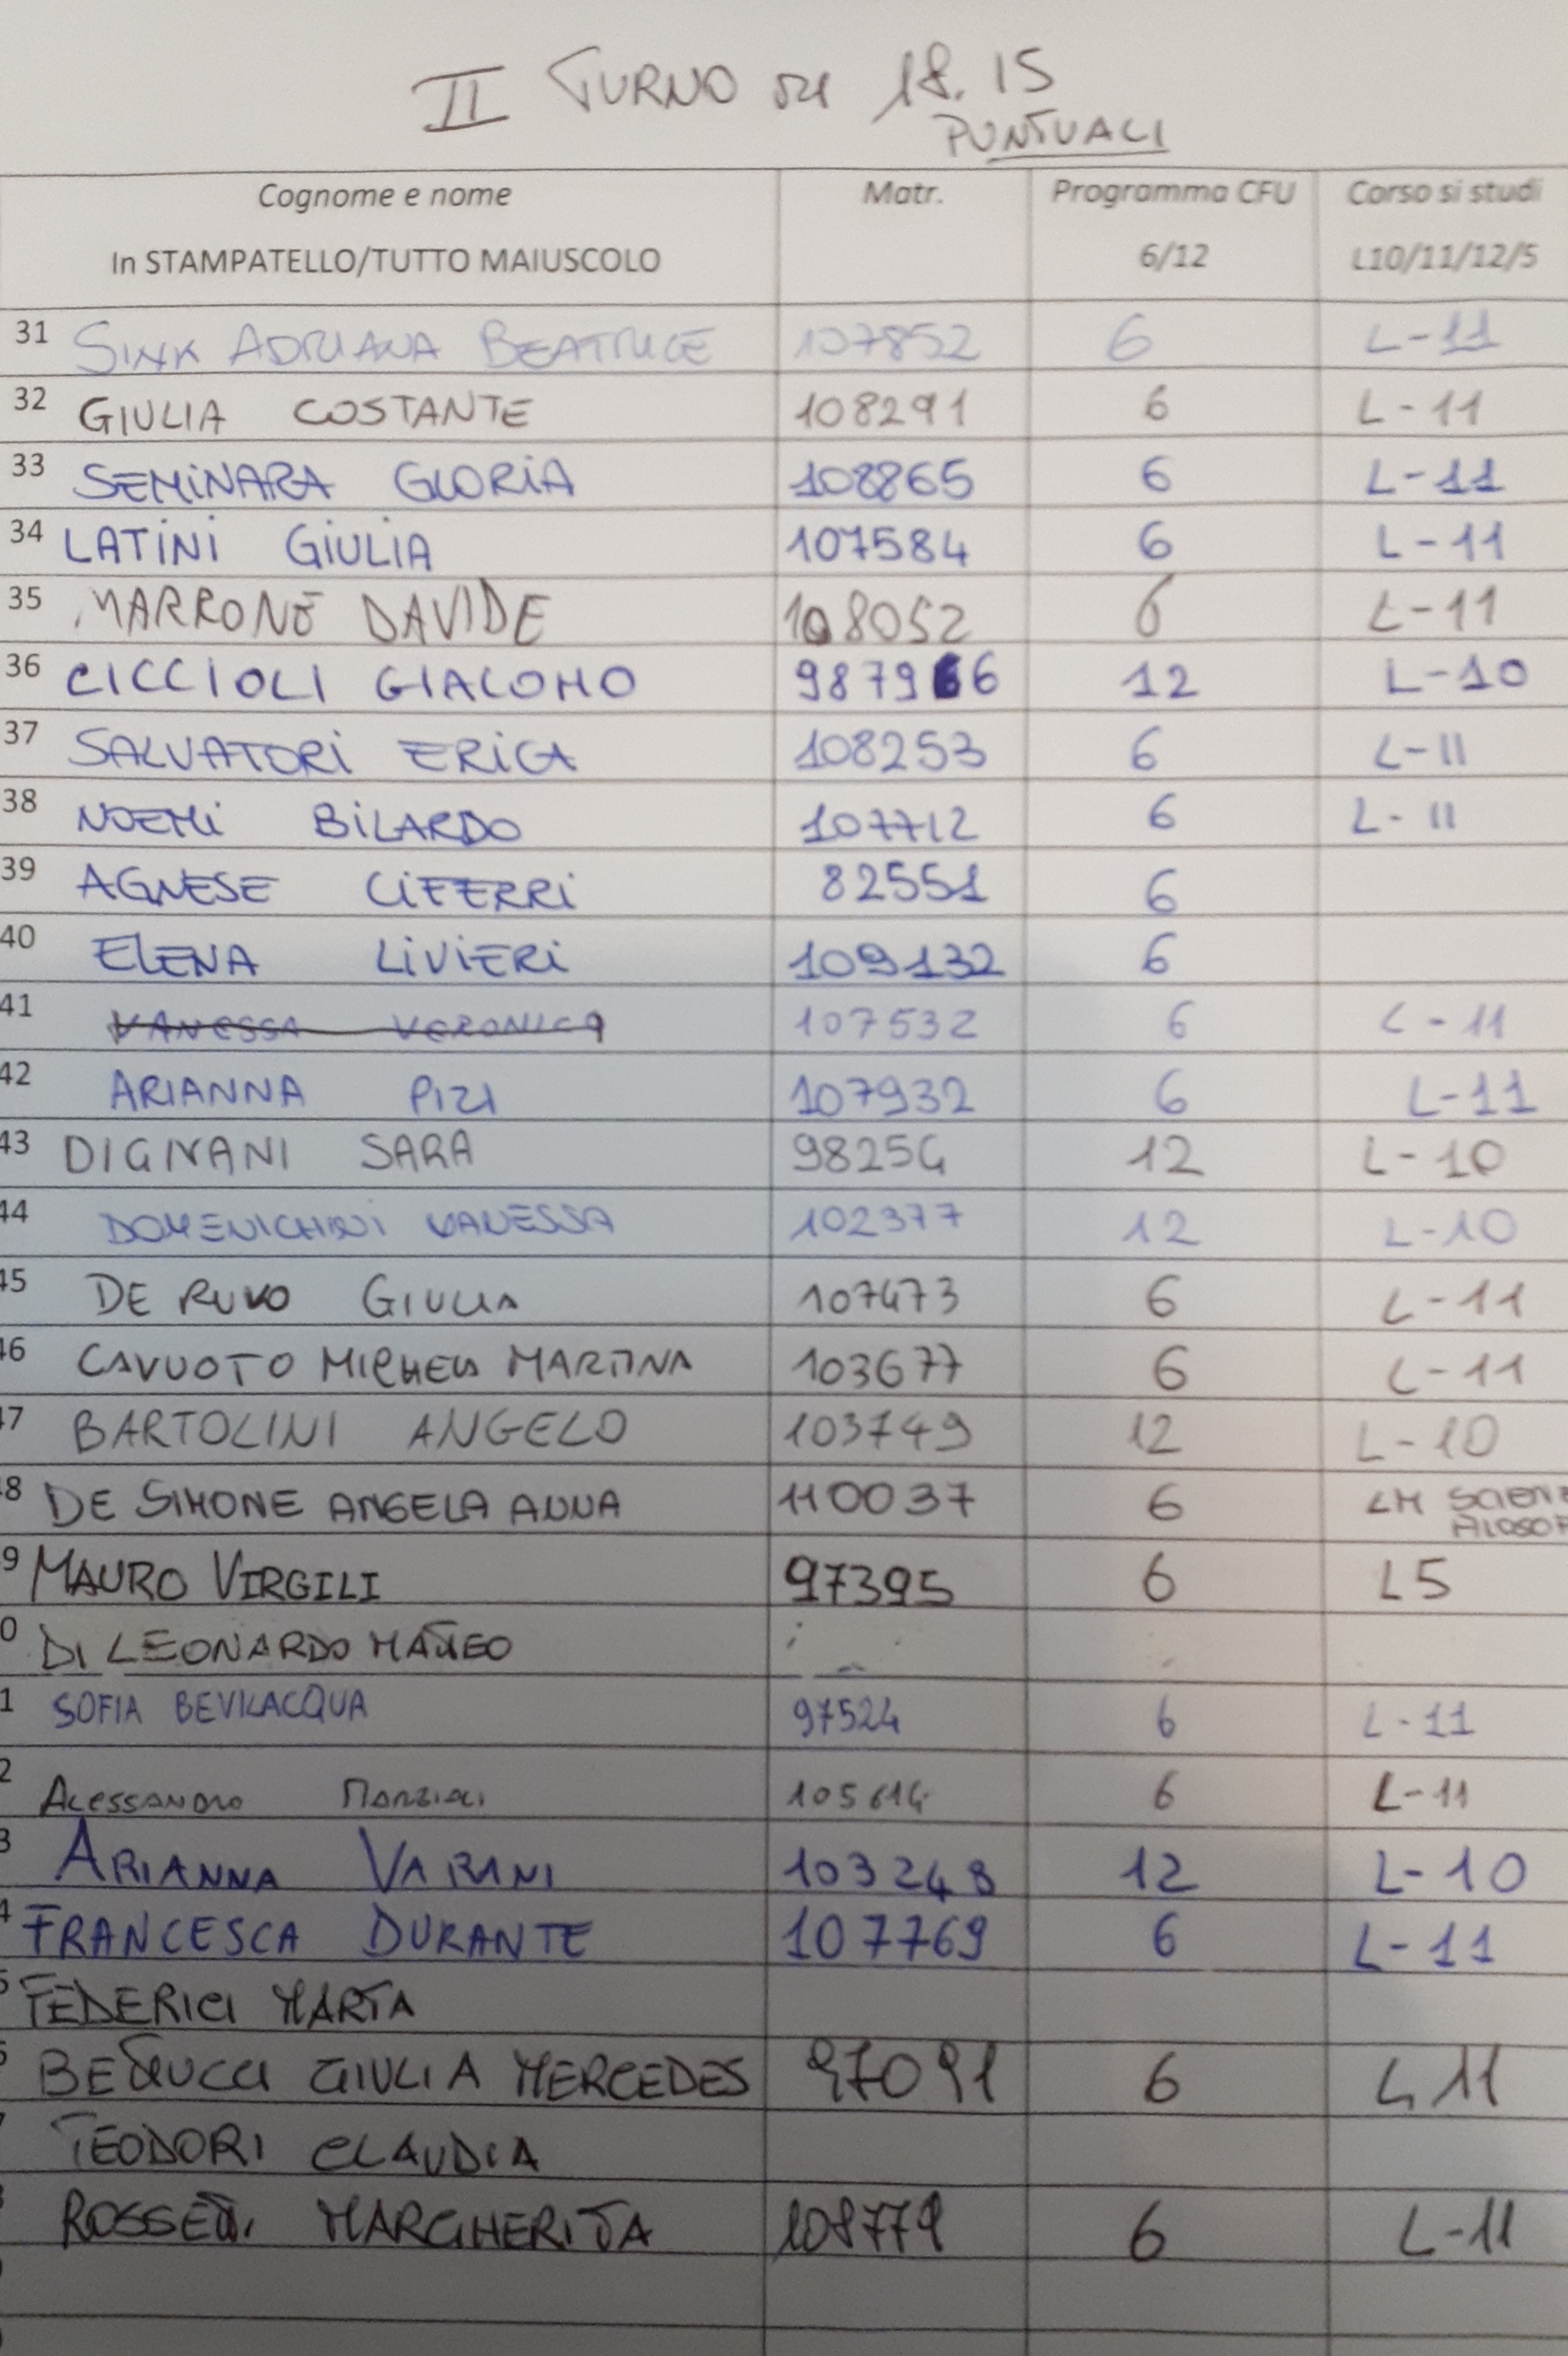 II TURNO ore 18.15
PUNTUALI
Cognome e nome Matr. Programma CFU Corso si studi
In STAMPATELLO/TUTTO MAIUSCOLO 6/12 L10/11/12/5
31 SINK ADRIANA BEATRICE 107852 6 L-11
32 GIULIA COSTANTE 108291 6 L-11
33 SEMINARA GLORIA 108865 6 L-11
34 LATINI GIULIA 107584 6 L-11
35 MARRONE DAVIDE 108052 6 L-11
36 CICCIOLI GIACOMO 12 L-10
37 SALVATORI ERICA 108253 6 L-11
38 NOEMI BILARDO 107712 6 L-11
39 AGNESE CIFERRI 82551 6
40 ELENA LIVIERI 109132 6
41 VANESSA VERONICA 107532 6 L-11
42 ARIANNA PIZI 107932 6 L-11
43 DIGNANI SARA 98254 12 L-10
44 DOMENICHINI VANESSA 102377 12 L-10
45 DE RUVO GIULIA 107473 6 L-11
46 CAVUOTO MICHELA MARTINA 103677 6 L-11
47 BARTOLINI ANGELO 103749 12 L-10
48 DE SIMONE ANGELA ANNA 110037 6 LM SCIENZE
FILOSOF
9 MAURO VIRGILI 97395 6 L5
0 DI LEONARDO MATTEO
1 SOFIA BEVILACQUA 97524 6 L-11
2 ALESSANDRO 105614 6 L-11
3 ARIANNA VARANI 103248 12 L-10
4 FRANCESCA DURANTE 107769 6 L-11
5 FEDERICI MARTA
6 BETTUCCI GIULIA MERCEDES 97091 6 L 11
7 TEODORI CLAUDIA
8 ROSSETTI MARGHERITA 108779 6 L-11